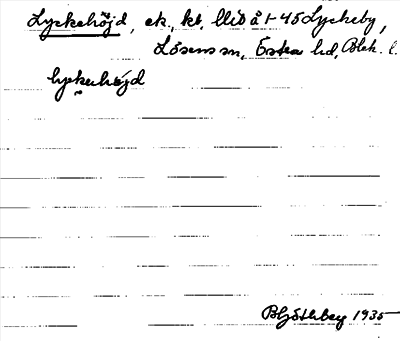 Lyckehöjd, ek., kt. Mið å 1-45 Lyckeby,
Lösens sn, Östra hd, Blek. l.
lyckehöjd
1935